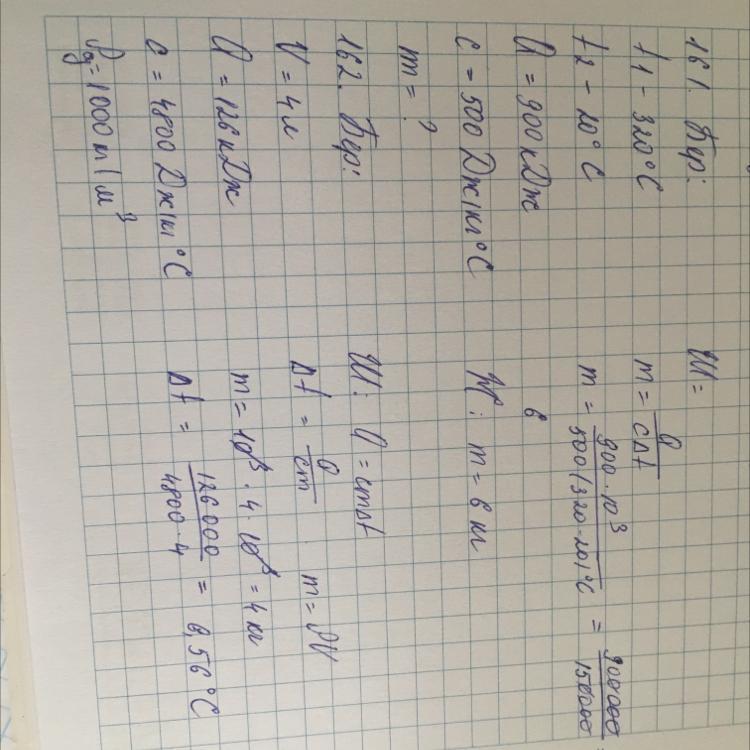 161. Бер:
t1 - 320°C
t2 - 20°C
Q = 900кДж
c = 500 Дж/кг°C
m = ?
Ш =
m = Q/cΔt
m = 900·10³/500(320-20)°C = 900000/150000
6
Ж: m = 6 кг
162. Бер:
V = 4л
Q = 126кДж
c = 4800 Дж/кг°C
= 1000кг/м³
Ш: Q = cmΔt
Δt = Q/cm m = ρV
m = 10³ · 4 · 10³ = 4кг
Δt = 126000/4800·4 = 6,56°C